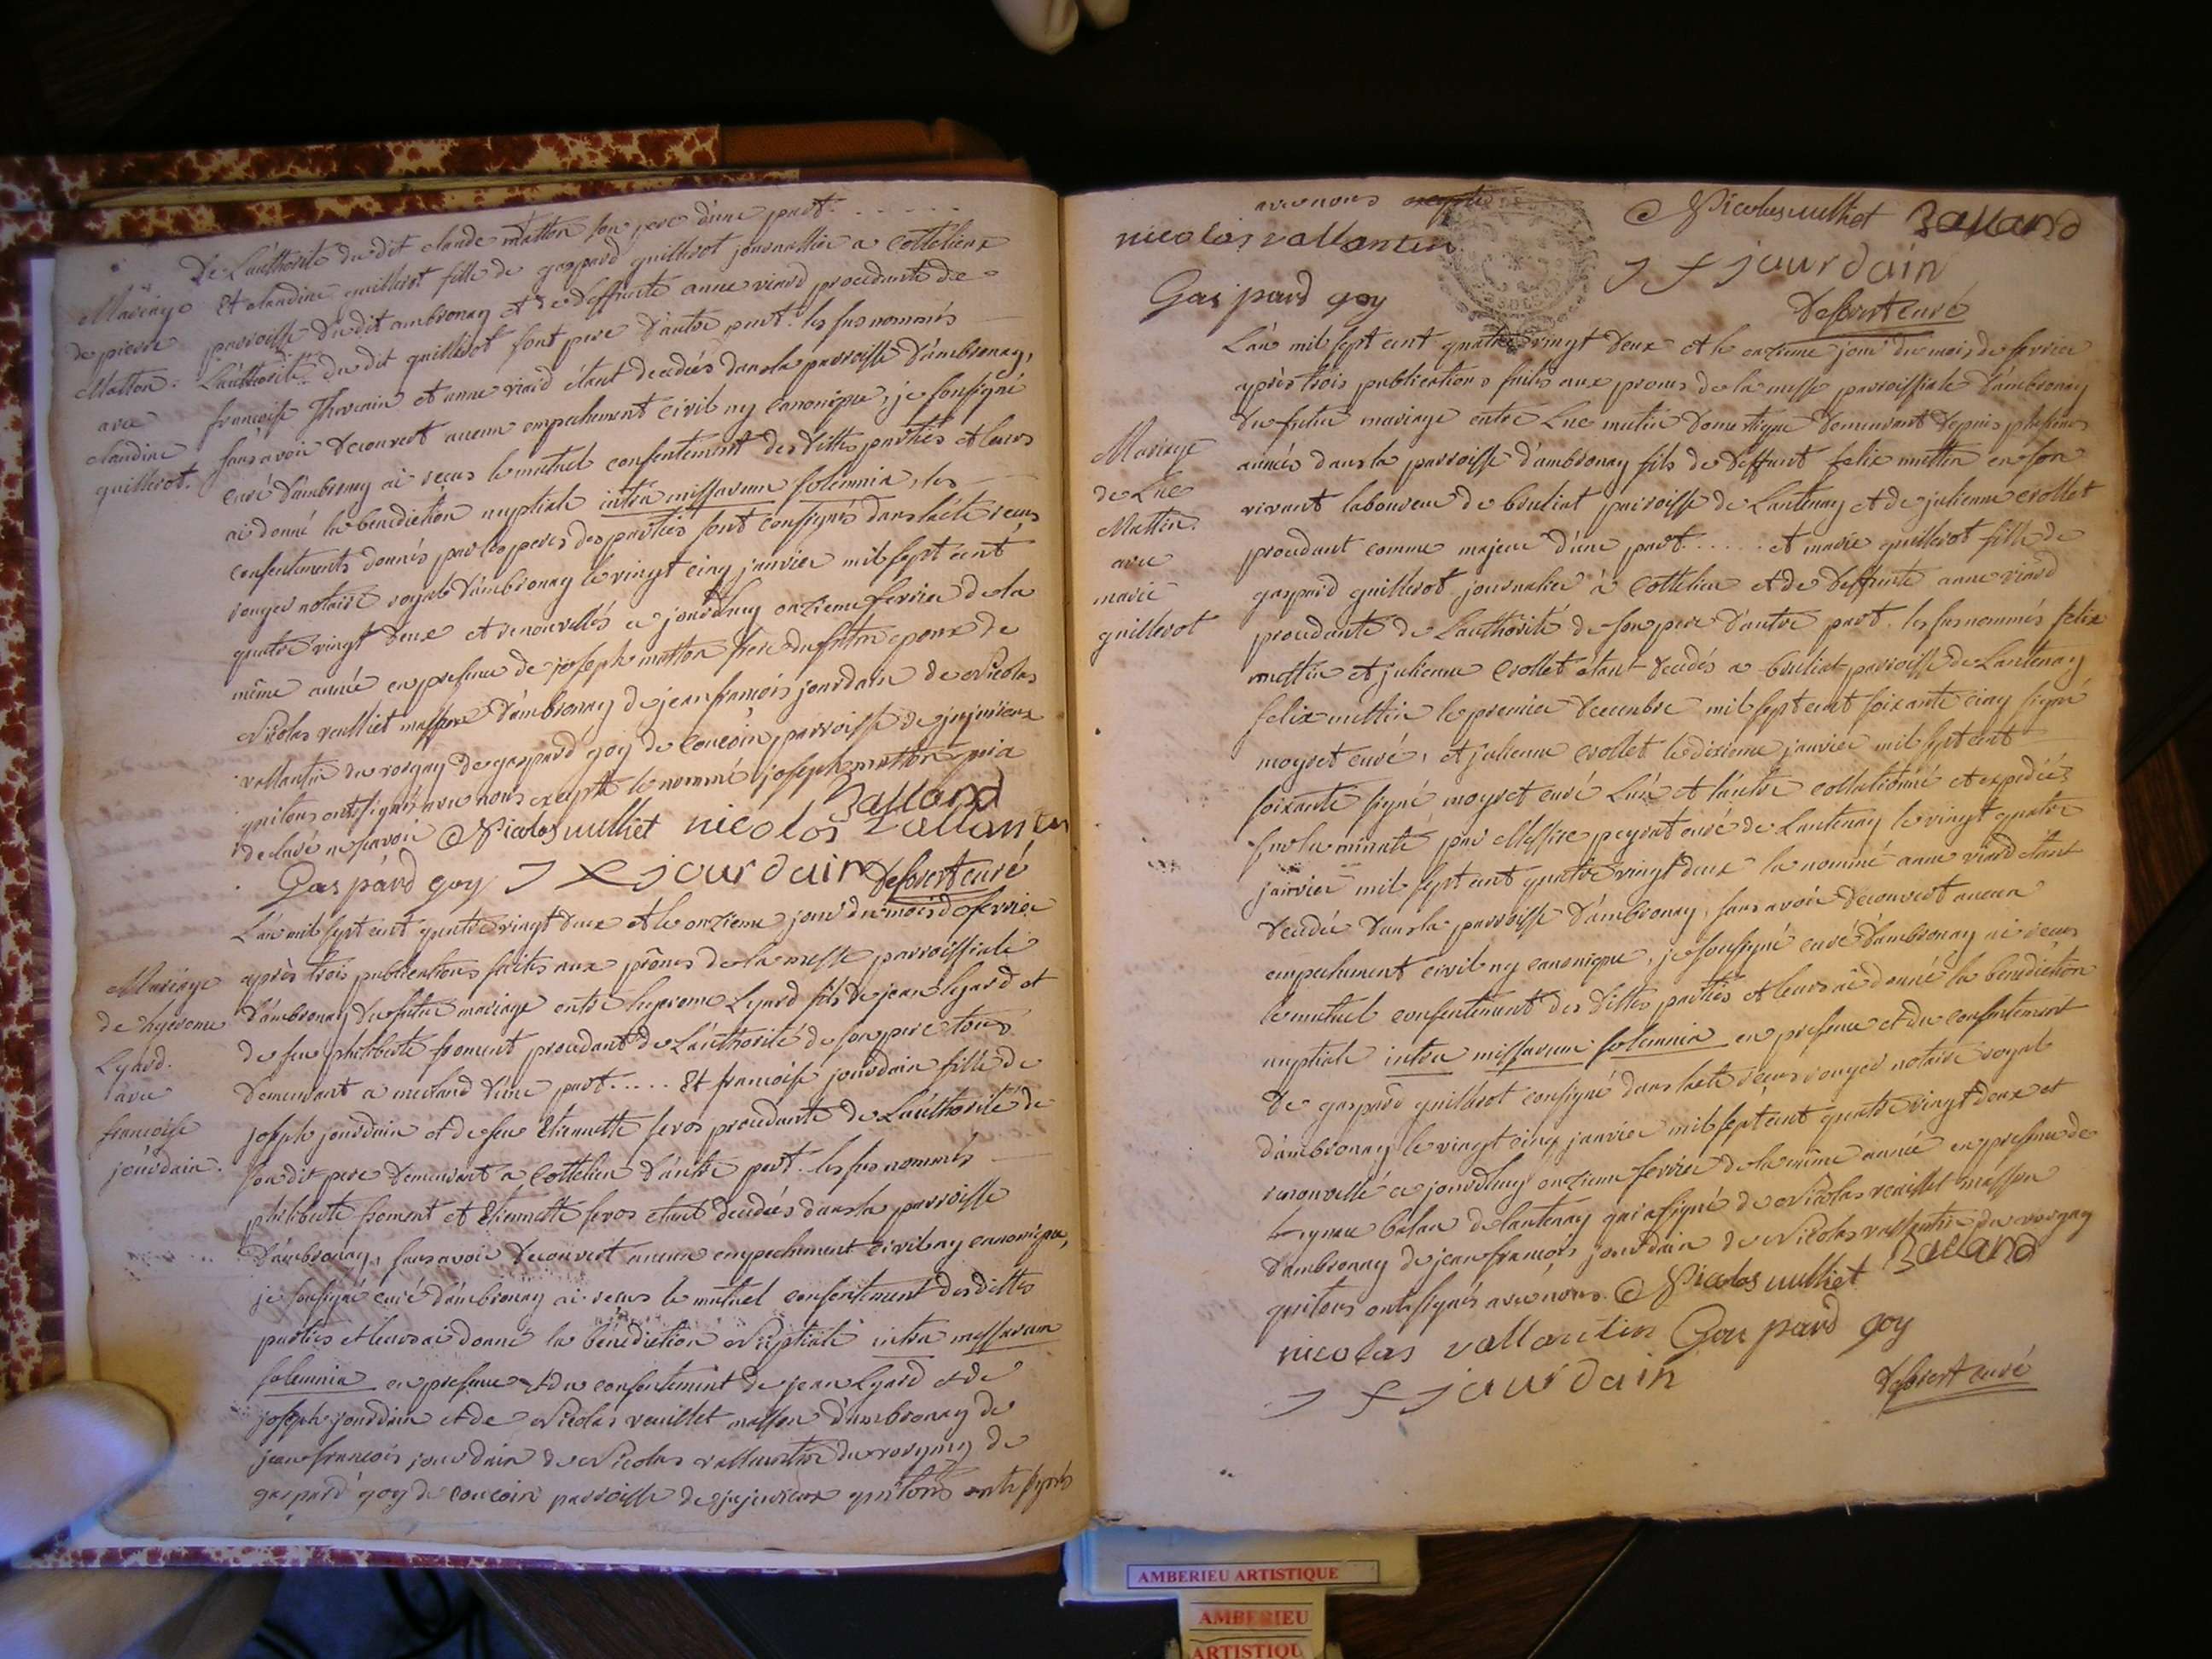 De L'authorité du dit claude matton son pere d'une part. . . . . .
Mariage
de pierre
Matton
avec
claudine
guillerot.
Et claudine guillerot fille de gaspard guillerot journallier a Cottelieux
parroisse du dit ambronay et de deffunte anne viard procedante de
L'authorité du dit guillerot sont pere d'autre part. les susnommés
françoise et anne viard étant decedées dans la parroisse d'ambronay,
sans avoir decouvert aucun empechement civil ny canonique, je soussigné
curé d'ambronay ai reçus le mutuel consentement des dittes parties et leurs
ai donné la benediction nuptiale intra missarum solemnia, les
consentements donnés par les peres des parties sont consignés dans l'acte reçus
rouyer notaire royal d'ambronay le vingt cinq janvier mil sept cent
quatre vingt deux et renouvellés ce jourdhuy onzieme fevrier de la
même année en presence de joseph matton frere du futur epoux de
Nicolas veulliet masson d'ambronay de jean françois jourdain de Nicolas
vallantin du vorgay de gaspard goy de Coucoin parroisse de jujurieux
qui tous ont signés avec nous excepté le nommé joseph matton qui a
declaré ne savoir Nicolas vulliet nicolas vallantin Balland
Gaspard goy J f jourdain Desvert curé
Mariage
de hyerome
Lyard.
avec
françoise
jourdain.
L'an mil sept cent quatre vingt deux et le onzieme jour du mois de fevrier
après trois publications faites aux prônes de la messe parroissiale
d'ambronay du futur mariage entre hyerome Lyard fils de jean lyard et
de feu philiberte froment procedant de L'authorité de son pere tous
demeurant a merland d'une part. . . . . Et françoise jourdain fille de
joseph jourdain et de feu Etiennette feros procedante de L'authorité de
son dit pere demeurant a Cottelieu d'autre part. les susnommés
philiberte froment et Etiennette feros etant decedées dans la parroisse
d'ambronay, sans avoir decouvert aucun empechement civil ny canonique,
je soussigné curé d'ambronay ai reçus le mutuel consentement des dittes
parties et leurs ai donné la bénediction Nuptiale intra missarum
solemnia en presence et du consentement de jean Lyard et de
joseph jourdain et de Nicolas veuillet masson d'ambronay de
jean françois jourdain de Nicolas vallantin du vorgay de
gaspard goy de Coucoin parroisse de jujurieux qui tous ont signés
avec nous
Nicolas vulliet Balland
nicolas vallantin
J f jourdain
Gaspard goy
Desvert curé
Mariage
de Luc
Mattin.
avec
marie
guillerot
L'an mil sept cent quatre vingt deux et le onzieme jour du mois de fevrier
après trois publications faites aux prones de la messe parroissiale d'ambronay
du futur mariage entre Luc mettin domestique demeurant depuis plusieurs
années dans la parroisse d'ambronay fils de deffunt felix mettin en son
vivant laboureur de bouliat parroisse de Lantenay et de julienne crollet
procedant comme majeur d'une part. . . . . . et marie guillerot fille de
gaspard guillerot journalier à Cottelieu et de deffunte anne viard
procedante de L'authorité de son pere d'autre part. les susnommés felix
mettin et julienne Crollet étant decedés a bouliat parroisse de Lantenay
felix mettin le premier decembre mil sept cent soixante cinq signé
moyret curé, et julienne crollet le dixieme janvier mil sept cent
soixante signé moyret curé L'un et l'autre collationné et expediés
sur la minute par Messire peyrat curé de Lantenay le vingt quatre
janvier mil sept cent quatre vingt deux la nommé anne viard étant
decedée dans la parroisse d'ambronay, sans avoir decouvert aucun
empechement civil ny canonique, je soussigné curé d'ambronay ai reçus
le mutuel consentement des dittes parties et leurs ai donné la benediction
nuptiale intra missarum solemnia en presence et du consentement
de gaspard guillerot consigné dans l'acte reçus rouyer notaire royal
d'ambronay le vingt cinq janvier mil sept cent quatre vingt deux et
renouvellé ce jourdhuy onzieme fevrier de la même année en presence de
balan de lantenay qui a signé de Nicolas veuillet masson
d'ambronay de jean françois jourdain de Nicolas vallantin du vorgay
qui tous ont signés avec nous. Nicolas vulliet Balland
nicolas vallantin Gaspard goy
J f jourdain
Desvert curé
AMBERIEU ARTISTIQUE
AMBERIEU
ARTISTIQU